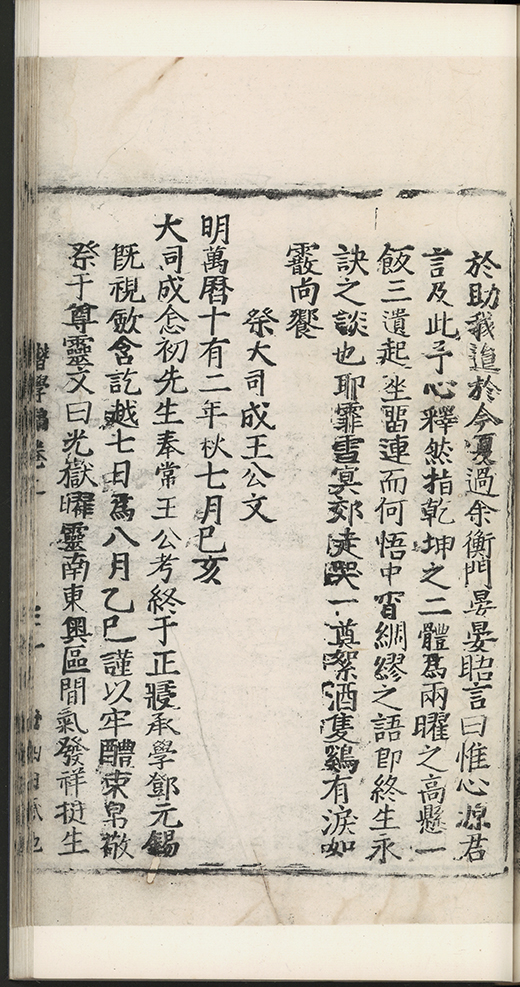 於助我進於今夏過余衡門晏晏晤言曰惟心源君
言及此予心釋然指乾坤之二體爲兩曜之高懸一
飯三遺起坐畱連而何悟中宵綢繆之語即終生永
訣之談也耶霏雪冥郊走哭一奠絮酒隻鷄有淚如
霰尚饗
祭大司成王公文
明萬曆十有二年秋七月己亥
大司成悆初先生奉常王公考終于正寢承學鄧元錫
既視斂含訖越七日爲八月乙巳謹以牢醴束帛敬
祭于尊靈文曰光嶽曜靈南東輿區間氣發祥挺生
潛學編卷之